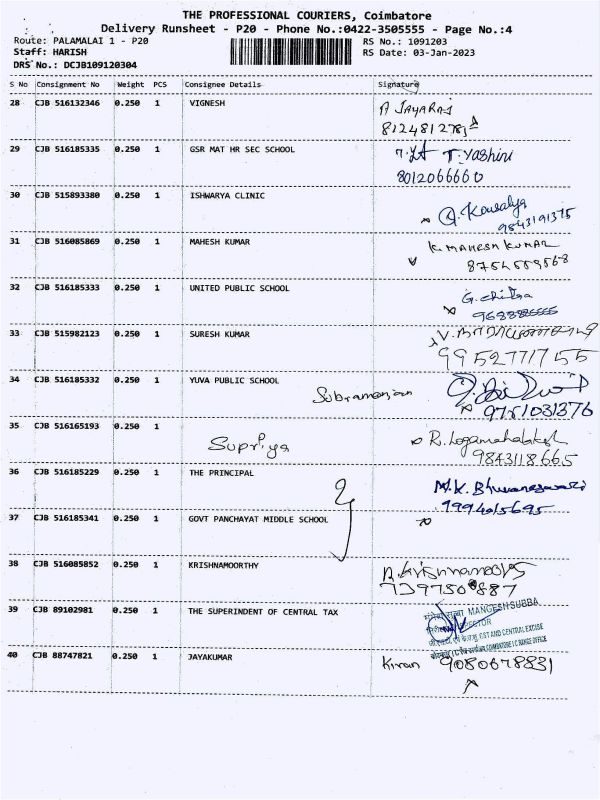 THE PROFESSIONAL COURIERS, Coimbatore
Delivery Runsheet - P20 - Phone No.:0422-3505555 - Page No.:4
Route: PALAMALAI 1 - P20 RS No.: 1091203
Staff: HARISH RS Date: 03-Jan-2023
DRS No.: DCJB109120304
S No Consignment No Weight PCS Consignee Details Signature
28 CJB 516132346 0.250 1 VIGNESH A JAYARAJ
8124812783
29 CJB 516185335 0.250 1 GSR MAT HR SEC SCHOOL T. Yashini
8012066660
30 CJB 515893380 0.250 1 ISHWARYA CLINIC Kowsalya
9843191375
31 CJB 516085869 0.250 1 MAHESH KUMAR K. MAHESH KUMAR
8754559568
32 CJB 516185333 0.250 1 UNITED PUBLIC SCHOOL G. Chitra
33 CJB 515982123 0.250 1 SURESH KUMAR
9952771755
34 CJB 516185332 0.250 1 YUVA PUBLIC SCHOOL Subramanian
9751031376
35 CJB 516165193 0.250 1 Supriya R. Logamahalaksh
9843118665
36 CJB 516185229 0.250 1 THE PRINCIPAL M.K. Bhuvaneswari
9994015695
37 CJB 516185341 0.250 1 GOVT PANCHAYAT MIDDLE SCHOOL
38 CJB 516085852 0.250 1 KRISHNAMOORTHY
39 CJB 89102981 0.250 1 THE SUPERINDENT OF CENTRAL TAX MANGESH SUBBA
GST AND CENTRAL EXCISE
40 CJB 88747821 0.250 1 JAYAKUMAR Kiran 9080678831